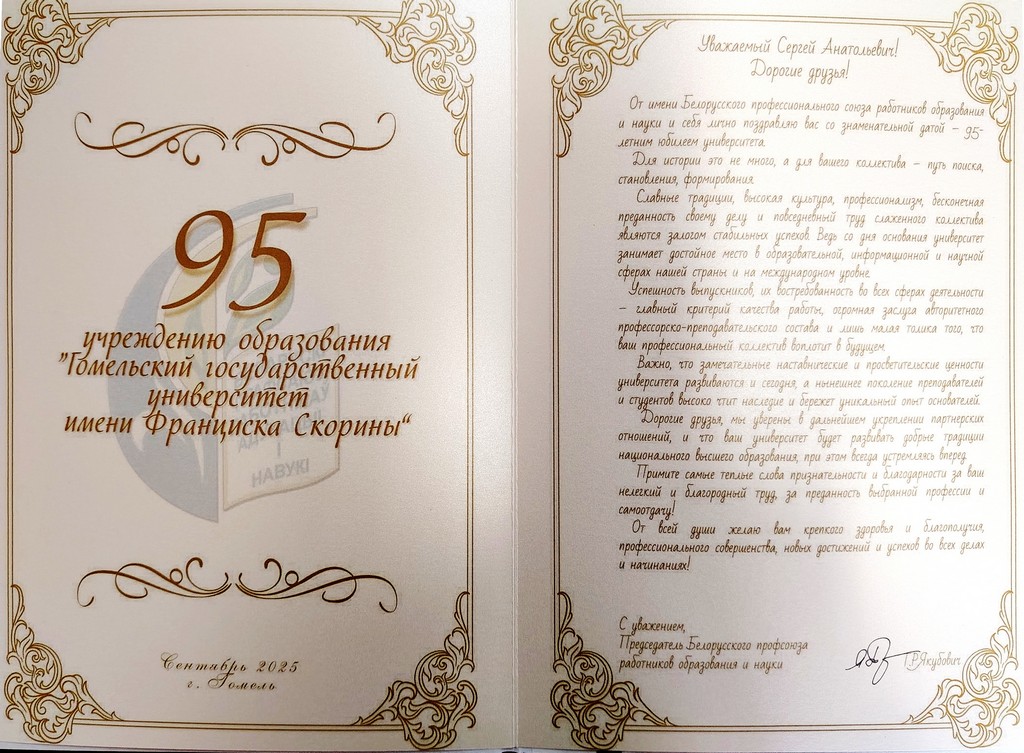 95
учреждению образования
"Гомельский государственный
университет
имени Франциска Скорины“
НАВУКІ
Сентябрь 2025
г. Гомель
Уважаемый Сергей Анатольевич!
Дорогие друзья!
От имени Белорусского профессионального союза работников образования
и науки и себя лично поздравляю вас со знаменательной датой – 95-
летним юбилеем университета.
Для истории это не много, а для вашего коллектива – путь поиска,
становления, формирования.
Славные традиции, высокая культура, профессионализм, бесконечная
преданность своему делу и повседневный труд слаженного коллектива
являются залогом стабильных успехов. Ведь со дня основания университет
занимает достойное место в образовательной, информационной и научной
сферах нашей страны и на международном уровне.
Успешность выпускников, их востребованность во всех сферах деятельности
– главный критерий качества работы, огромная заслуга авторитетного
профессорско-преподавательского состава и лишь малая толика того, что
ваш профессиональный коллектив воплотит в будущем.
Важно, что замечательные наставнические и просветительские ценности
университета развиваются и сегодня, а нынешнее поколение преподавателей
и студентов высоко чтит наследие и бережет уникальный опыт основателей.
Дорогие друзья, мы уверены в дальнейшем укреплении партнерских
отношений, и что ваш университет будет развивать добрые традиции
национального высшего образования, при этом всегда устремляясь вперед.
Примите самые теплые слова признательности и благодарности за ваш
нелегкий и благородный труд, за преданность выбранной профессии и
самоотдачу!
От всей души желаю вам крепкого здоровья и благополучия,
профессионального совершенства, новых достижений и успехов во всех делах
и начинаниях!
С уважением,
Председатель Белорусского профсоюза
работников образования и науки Т.Р.Якубович